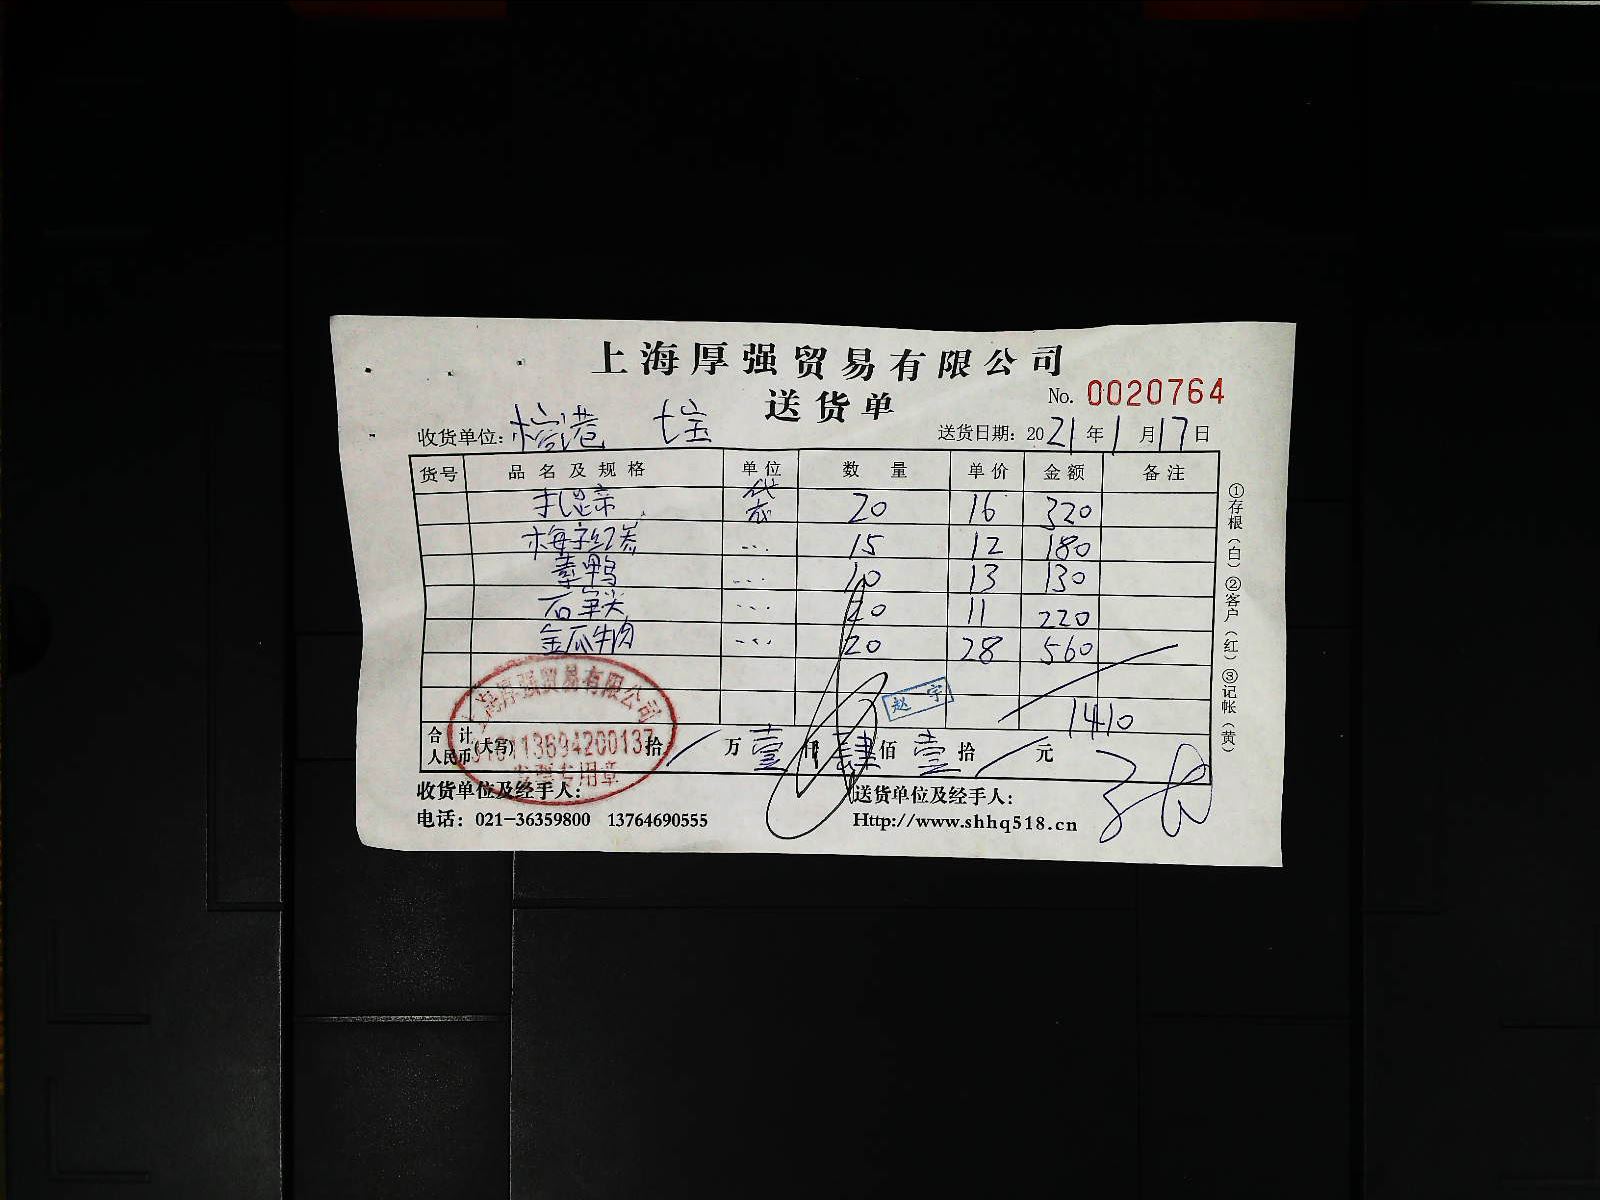 上海厚强贸易有限公司
送货单
No. 0020764
收货单位: 七宝
送货日期: 2021年1月17日
货号 品名及规格 单位 数量 单价 金额 备注
袋 20 16 320
15 12 180
素鸭 10 13 130
石笋尖 20 11 220
金瓜牛肉 20 28 560
赵宇
1410
合计人民币(大写) 拾/万壹仟肆佰壹拾/元
上海厚强贸易有限公司
发票专用章
收货单位及经手人: 送货单位及经手人:
电话: 021-36359800 13764690555 Http://www.shhq518.cn
①存根(白)②客户(红)③记帐(黄)